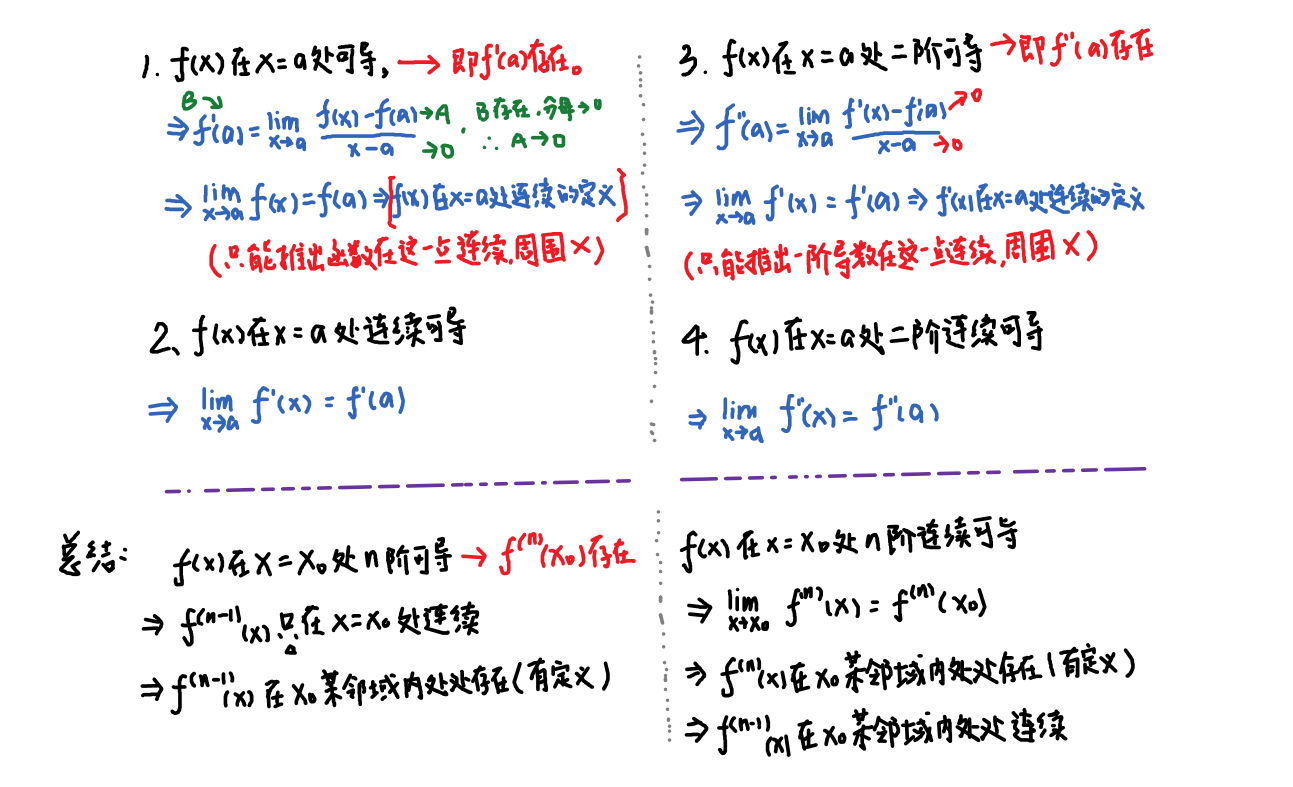 1. f(x)在x=a处可导, → 即f'(a)存在。
B ↘
⇒ f'(a) = lim x→a f(x)-f(a) →A / x-a →0 . B存在.分母→0
∴ A→0
⇒ lim x→a f(x) = f(a) ⇒ [f(x)在x=a处连续的定义]
(只能推出函数在这一点连续,周围×)
2、f(x)在x=a处连续可导
⇒ lim x→a f'(x) = f'(a)
3. f(x)在x=a处二阶可导 → 即f''(a)存在
⇒ f''(a) = lim x→a f'(x)-f'(a) →0 / x-a →0
⇒ lim x→a f'(x) = f'(a) ⇒ f'(x)在x=a处连续的定义
(只能推出一阶导数在这一点连续,周围×)
4. f(x)在x=a处二阶连续可导
⇒ lim x→a f''(x) = f''(a)
总结:
f(x)在x=x₀处n阶可导 → f⁽ⁿ⁾(x₀)存在
⇒ f⁽ⁿ⁻¹⁾(x)只在x=x₀处连续
⇒ f⁽ⁿ⁻¹⁾(x)在x₀某邻域内处处存在(有定义)
f(x)在x=x₀处n阶连续可导
⇒ lim x→x₀ f⁽ⁿ⁾(x) = f⁽ⁿ⁾(x₀)
⇒ f⁽ⁿ⁾(x)在x₀某邻域内处处存在(有定义)
⇒ f⁽ⁿ⁻¹⁾(x)在x₀某邻域内处处连续